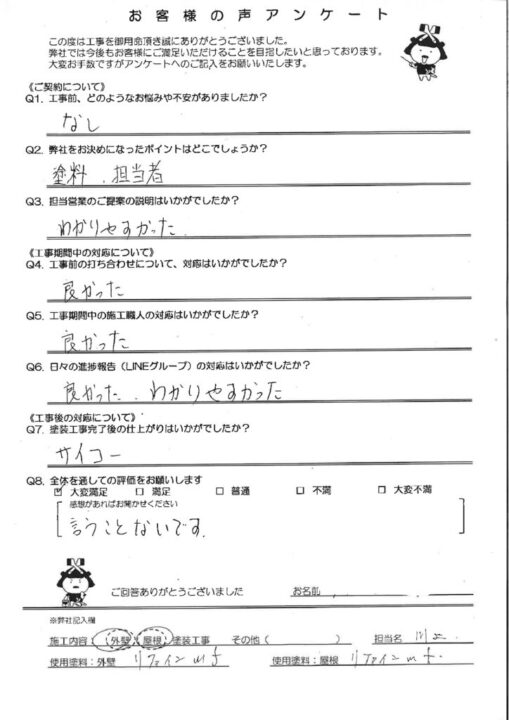 お客様の声アンケート
この度は工事を御用命頂き誠にありがとうございました。
弊社では今後もお客様にご満足いただけることを目指したいと思っております。
大変お手数ですがアンケートへのご記入をお願いいたします。
《ご契約について》
Q1. 工事前、どのようなお悩みや不安がありましたか？
なし
Q2. 弊社をお決めになったポイントはどこでしょうか？
塗料 . 担当者
Q3. 担当営業のご提案の説明はいかがでしたか？
わかりやすかった.
《工事期間中の対応について》
Q4. 工事前の打ち合わせについて、対応はいかがでしたか？
良かった
Q5. 工事期間中の施工職人の対応はいかがでしたか？
良かった
Q6. 日々の進捗報告（LINEグループ）の対応はいかがでしたか？
良かった . わかりやすかった
《工事後の対応について》
Q7. 塗装工事完了後の仕上がりはいかがでしたか？
サイコー
Q8. 全体を通しての評価をお願いします
☑ 大変満足 □ 満足 □ 普通 □ 不満 □ 大変不満
感想があればお聞かせください
言うことないです.
ご回答ありがとうございました お名前
※弊社記入欄
施工内容：（外壁・屋根）塗装工事 その他（ ） 担当名
使用塗料：外壁 リファイン 使用塗料：屋根 リファイン